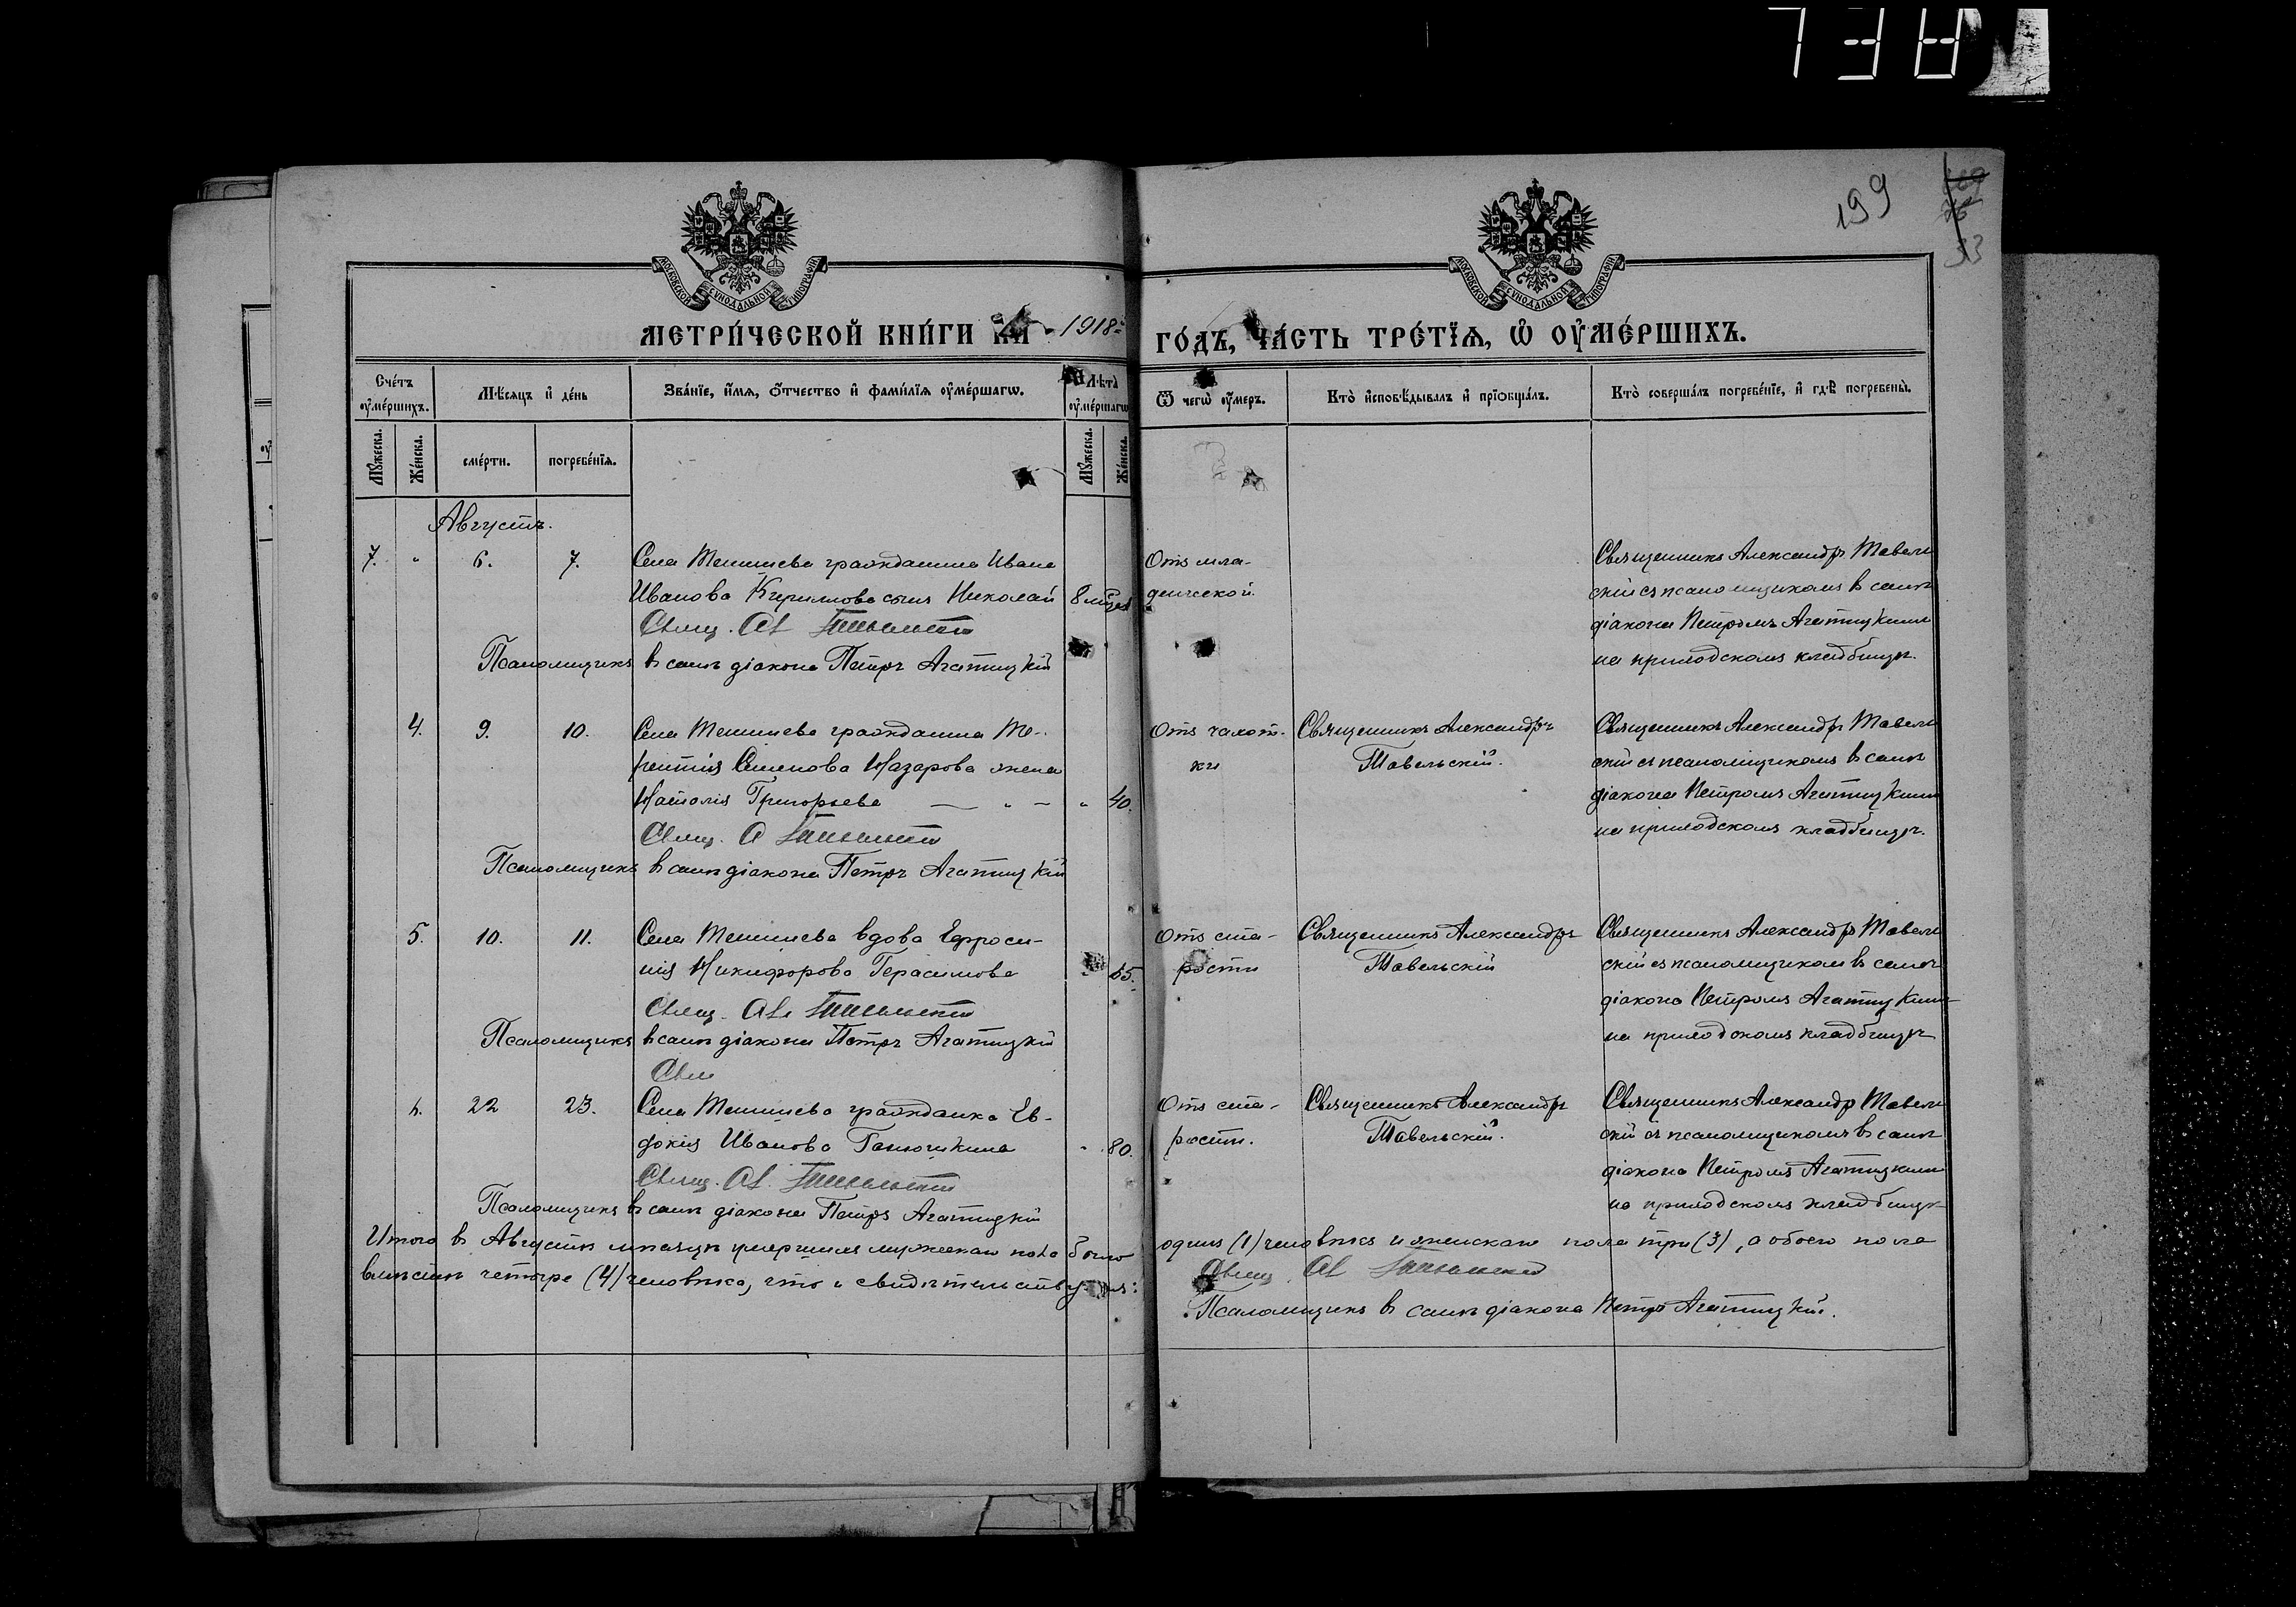 199
33
МОСКОВСКОЙ СѴНОДАЛЬНОЙ ТИПОГРАФІИ
МОСКОВСКОЙ СѴНОДАЛЬНОЙ ТИПОГРАФІИ
МЕТРИ́ЧЕСКОЙ КНИ́ГИ НА 1918 ГО́ДЪ, ЧА́СТЬ ТРЕ́ТЇѦ, Ѡ ОУ҆МЕ́РШИХЪ.
Сче́тъ оу҆ме́ршихъ.
Мѣ́сяцъ и҆ де́нь
Зва́нїе, и҆́мѧ, ѻ҆́тчество и҆ фами́лїѧ оу҆ме́ршагѡ.
Лѣ́та оу҆ме́ршагѡ
Ѿ чегѡ̀ оу҆́меръ.
Кто̀ и҆сповѣ́дывалъ и҆ прїѡбща́лъ.
Кто̀ соверша́лъ погребе́нїе, и҆ гдѣ̀ погребены̀.
Мꙋ́жеска.
Же́нска.
сме́рти.
погребе́нїѧ.
Мꙋ́жеска.
Же́нска.
Августъ.
7. " 6. 7. Села гражданина Ивана
Иванова Кириллова сынъ Николай 8
Свящ. Ал.
Псаломщикъ въ санѣ діакона Петръ Агатицкій
Отъ мла-
денческой
Священникъ Александръ Тавель
скій съ псаломщикомъ въ санѣ
діакона Петромъ Агатицкимъ
на приходскомъ кладбищѣ.
4. 9. 10. Села гражданина Те-
рентія Семенова Назарова жена
Наталія Григорьева — " — " 40.
Свящ. А
Псаломщикъ въ санѣ діакона Петръ Агатицкій
Отъ чахот-
ки
Священникъ Александръ
Тавельскій.
Священникъ Александръ Тавель
скій съ псаломщикомъ въ санѣ
діакона Петромъ Агатицкимъ
на приходскомъ кладбищѣ.
5. 10. 11. Села вдова Ефроси-
нія Никифорова Герасимова
Свящ. Ал.
Псаломщикъ въ санѣ діакона Петръ Агатицкій
Свя
Отъ ста-
рости
Священникъ Александръ
Тавельскій
Священникъ Александръ Тавель
скій съ псаломщикомъ въ санѣ
діакона Петромъ Агатицкимъ
на приходскомъ кладбищѣ
22 23. Села гражданка Ев-
докія Иванова " 80.
Свящ. Ал.
Псаломщикъ въ санѣ діакона Петръ Агатицкій
Отъ ста-
рости.
Священникъ Александръ
Тавельскій.
Священникъ Александръ Тавель
скій съ псаломщикомъ въ санѣ
діакона Петромъ Агатицкимъ
на приходскомъ кладбищѣ
Итого въ Августѣ мѣсяцѣ умершихъ мужскаго пола было одинъ (1) человѣкъ и женскаго пола три (3), а обоего пола
вмѣстѣ четыре (4) человѣка, что и свидѣтельствуемъ:
Свящ. Ал.
Псаломщикъ въ санѣ діакона Петръ Агатицкій.